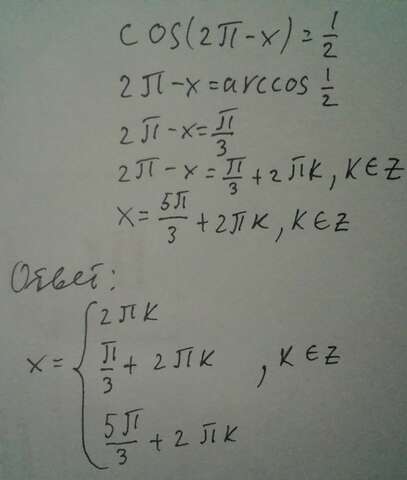 cos(2π-x)=1/2
2π-x=arccos 1/2
2π-x=π/3
2π-x=π/3+2πk, k∈Z
x=5π/3+2πk, k∈Z
Ответ:
2πk
x={ π/3+2πk , k∈Z
5π/3+2πk